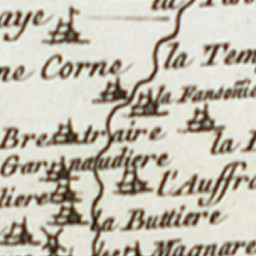 la
aye
la Tem
ne Corne
la Fanson
Bretraire
la
Garnaudiere
l'Auffr
liere
la Buttiere
Magnare